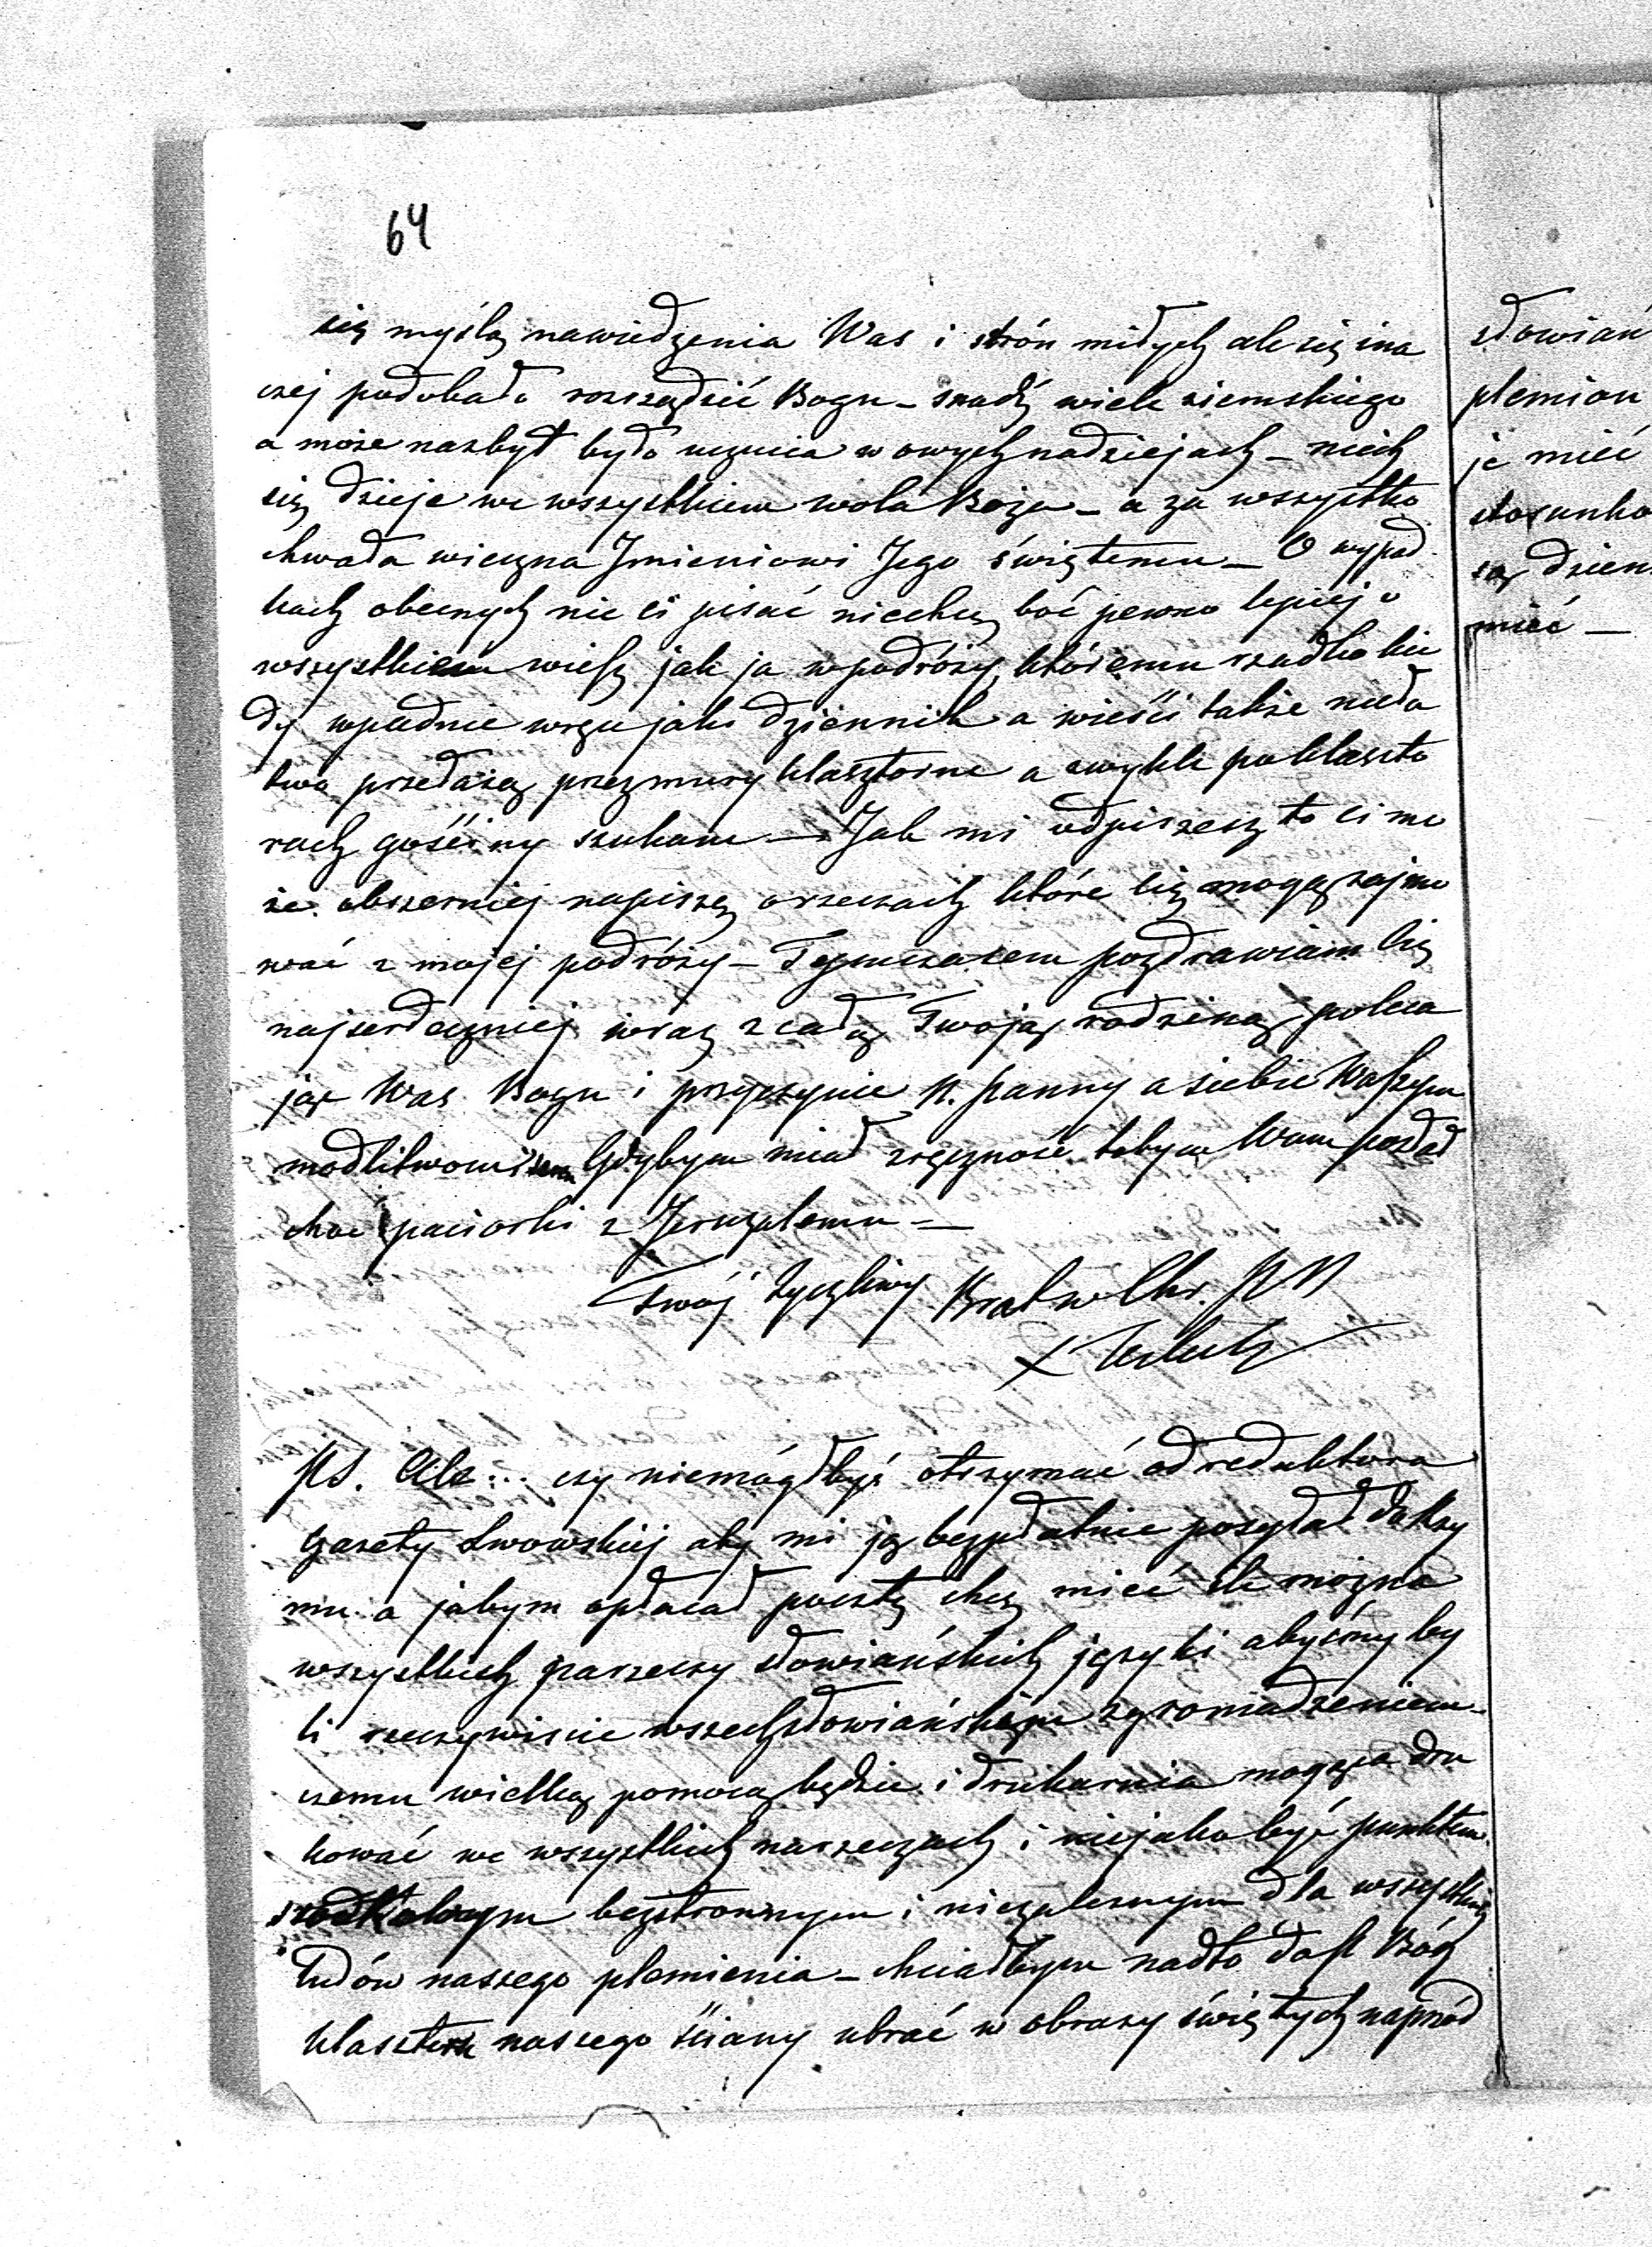 64
się myślą nawiedzenia Was i strón miłych ale się ina
czej podobało rozrządzić Bogu – snadź wiele ziemskiego
a może nazbyt było uczucia w owych nadziejach – niech
się dzieje we wszystkiem wola Boża – a za wszystko
chwała wieczna Jmieniowi Jego świętemu – O wypad
kach obecnych nic ci pisać niechcę boć pewno lepiej o
wszystkiem wiesz jak ja w podróży, któremu rzadko kie
dy wpadnie w rękę jaki dziennik a wieści także nieła
two przedażą przez mury klasztorne a zwykle po klaszto
rach gościny szukam – Jak mi odpiszesz to ci mo
że obszerniej napiszę o rzeczach które cię mogą zajmo
wać z mojej podróży – Tymczasem pozdrawiam Cię
najserdeczniej wraz z całą Twoją rodziną poleca
jąc Was Bogu i przyczynie N. Panny a siebie Waszym
modlitwom Gdybym miał zręczność tobym Wam posłał
choć paciorki z Jeruzalemu –
Twój życzliwy Brat w Chr. P N
X
PS. Ale... czy niemógłbyś otrzymać od redaktora
gazety Lwowskiej aby mi ją bezpłatnie posyłał do Rzy
mu a jabym opłacał pocztę chcę mieć ile można
wszystkich narzeczy słowiańskich języki abyśmy by
li rzeczywiscie wszechsłowiańskiem zgromadzeniem –
czemu wielką pomocą będzie i drukarnia mogąca dru
kować we wszystkich narzeczach i niejako być punktem
środkowym bezstronnym i niezależnym dla wszystkich
ludów naszego plemienia – chciałbym nadto da Bóg
klasztoru naszego ściany ubrać w obrazy świętych naprzód
słowiań
plemion
je mieć
stosunko
są dzien
mieć –